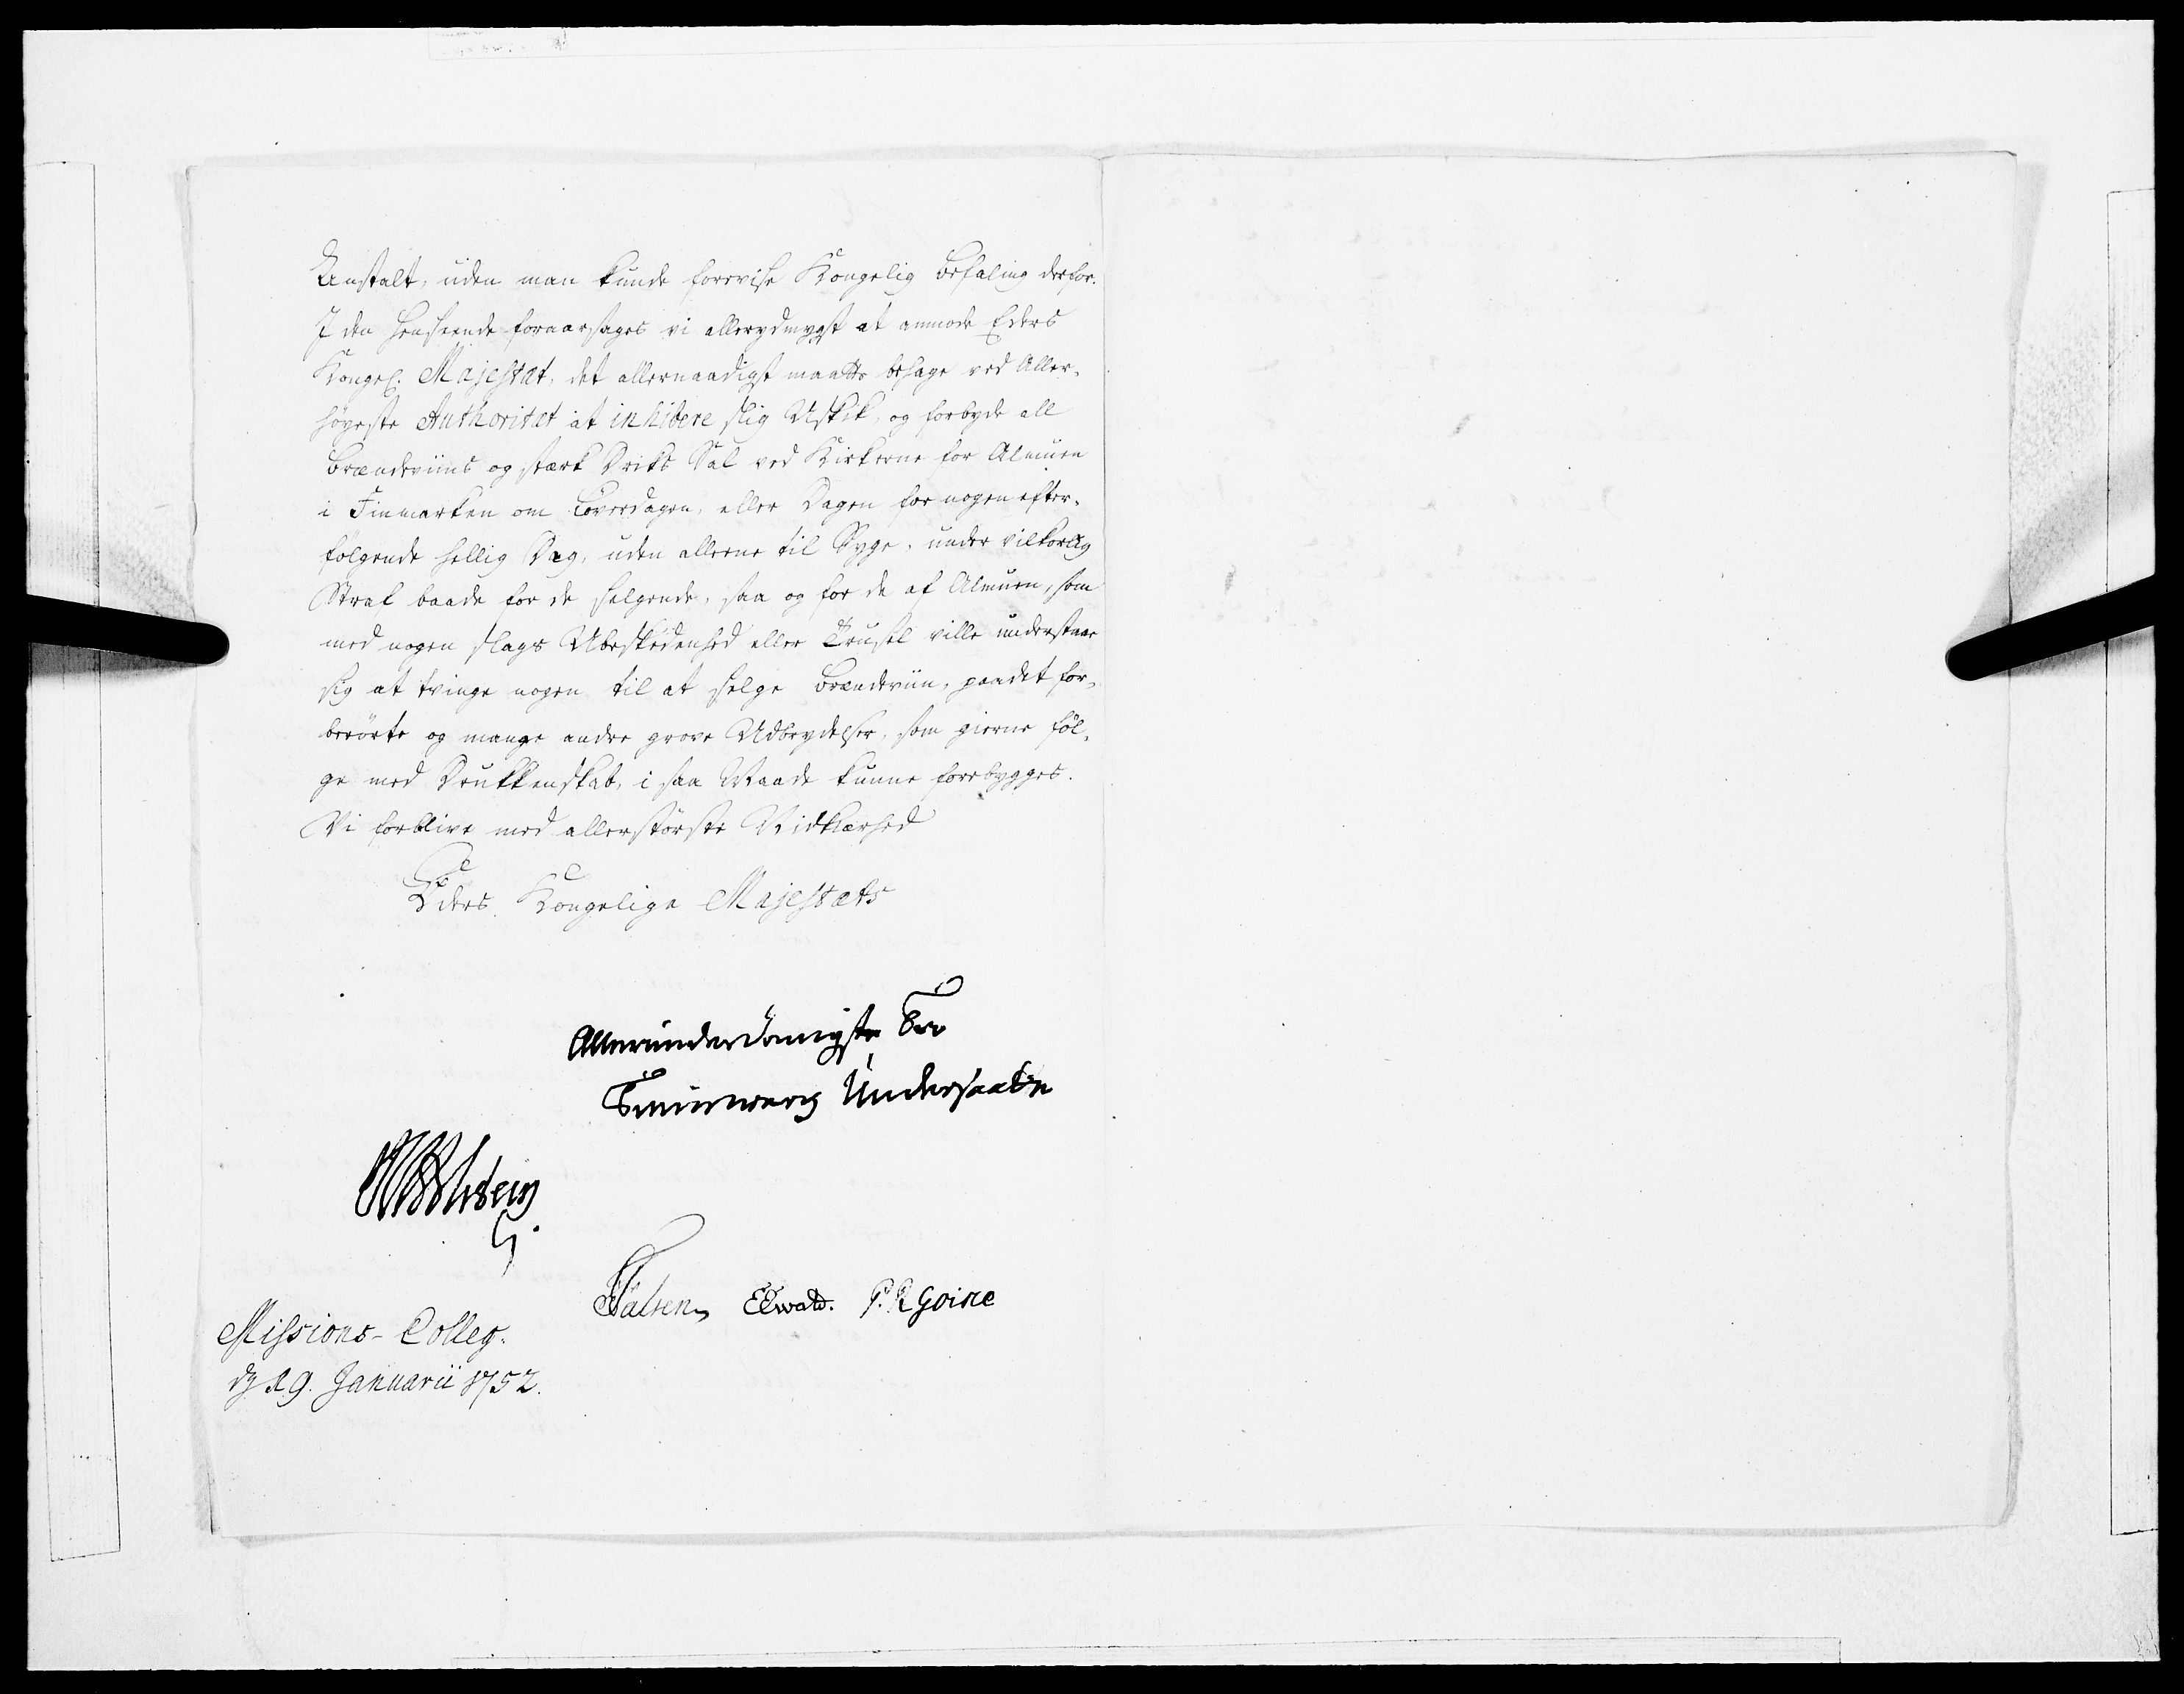 Anstalt, uden man kunde forevise Kongelig Befaling derfor.
I den henseende foraarsages vi allerydmygst at anmode Eders
Kongel. Majestæt, det allernaadigst maatte behage ved Aller-
høyeste Authoritet at inhibere slig Uskik, og forbyde all
Brændeviins og stærk Driks Sal ved Kirkerne for Almuen
i Finmarken om Löverdagen, eller Dagen for nogen efter-
følgende hellig Dag, uden allene til Syge, under vilkorlig
Straf baade for de selgende, saa og for de af Almuen, som
med nogen slags Ubeskedenhed eller Trusel ville understaae
sig at tvinge nogen til at selge Brændeviin, paadet for-
berörte og mange andre grove Udbrydelser, som gierne föl-
ge med Drukkenskab, i saa Maade kunne forebygges.
Vi forblive med allerstörste Nidkærhed
Eders Kongelige Majestæts
Allerunderdanigste Troe
Undersaatte
Holstein
Falsen Ewald. P. R Goine
Missions-Colleg.
d 19. Januarii 1752.